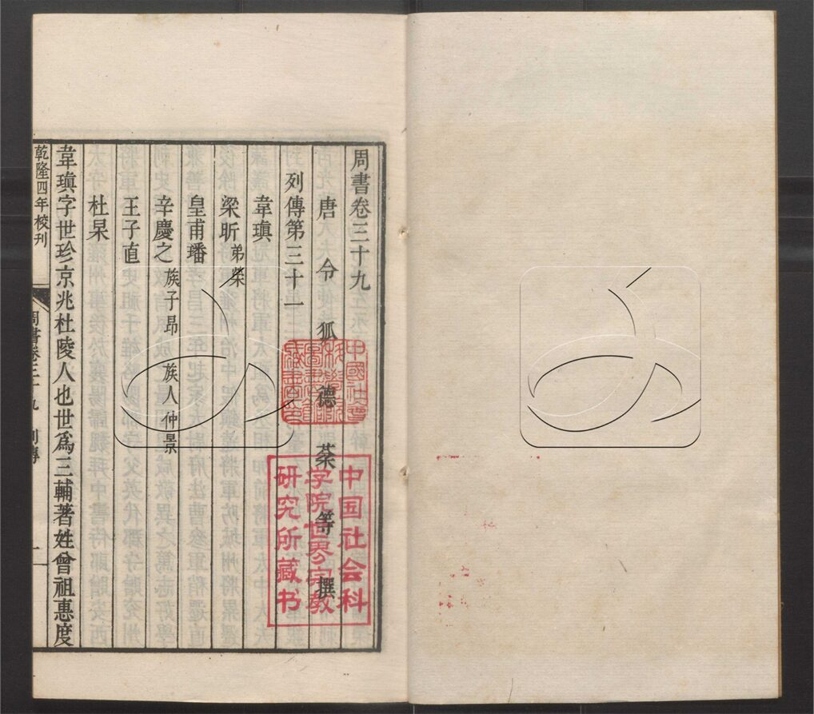 周書卷三十九
唐令狐德棻等撰
列傳第三十一
韋瑱
梁昕 弟榮
皇甫璠
辛慶之 族子昂 族人仲景
王子直
杜杲
韋瑱字世珍京兆杜陵人也世爲三輔著姓曾祖惠度
乾隆四年校刊
周書卷三十九 列傳 一
中国社会科
学院世界宗教
研究所藏书